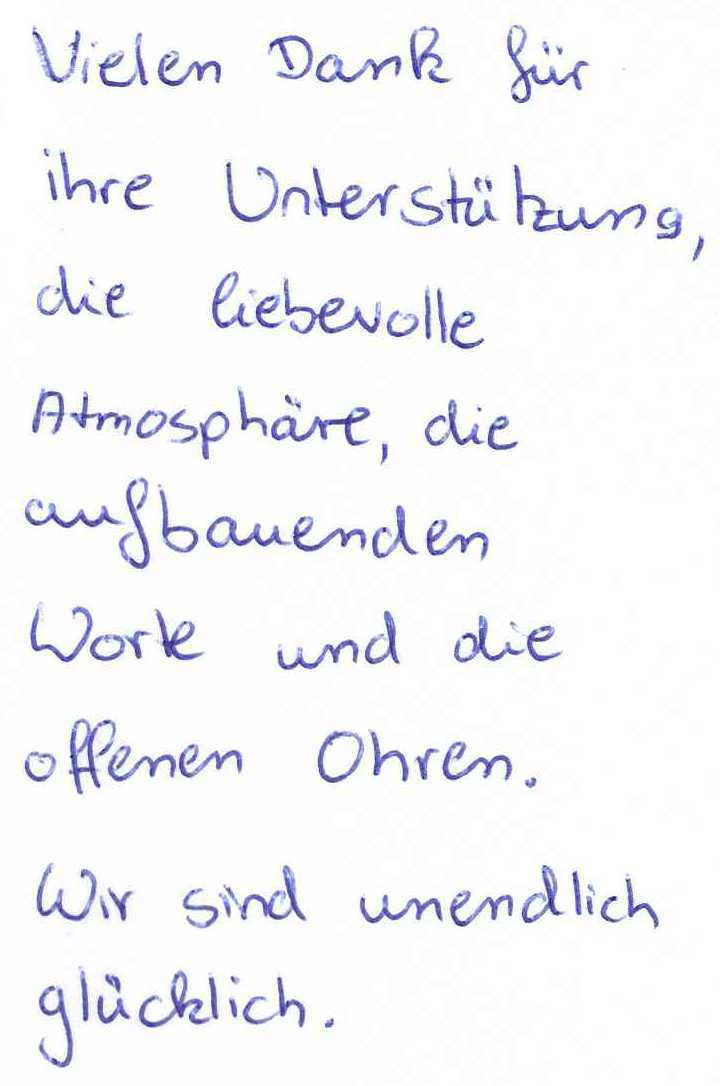 Vielen Dank für
ihre Unterstützung,
die liebevolle
Atmosphäre, die
aufbauenden
Worte und die
offenen Ohren.
Wir sind unendlich
glücklich.